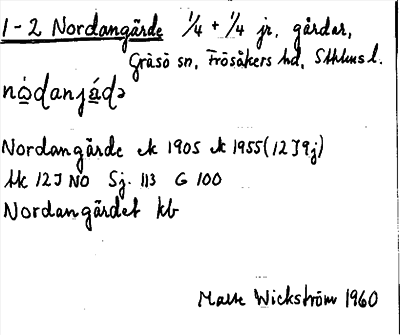 1-2 Nordangärde 1/4 + 1/4 jr, gårdar,
Gräsö sn, Frösåkers hd, Sthlms l.
nọ̀danjádə
Nordangärde ek 1905 ek 1955 (12 J 9j)
Hk 12 J NO Sj. 113 G 100
Nordangärdet kb
Malte Wickström 1960